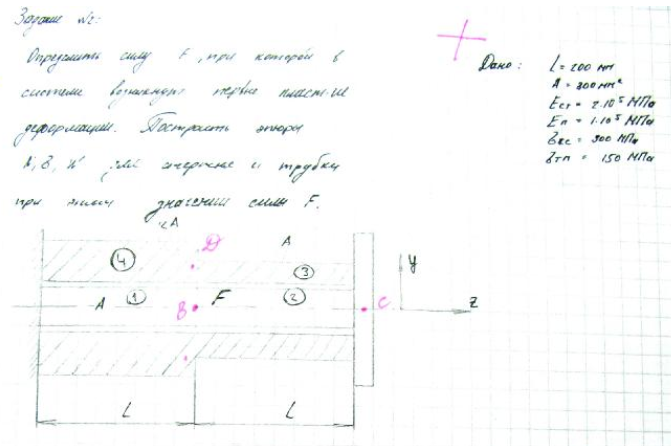 Задание №2:
Определить силу F, при которой в
системе возникнут первые пласт-ие
деформации. Построить эпюры
N, σ, W для стержня и трубки
при этом значении силы F.
Дано: L = 200 мм
A = 300 мм²
Eст = 2·10⁵ МПа
Eп = 1·10⁵ МПа
σтс = 300 МПа
σтп = 150 МПа
2A
D
A
4
3
y
A
1
B
F
2
C
z
L
L